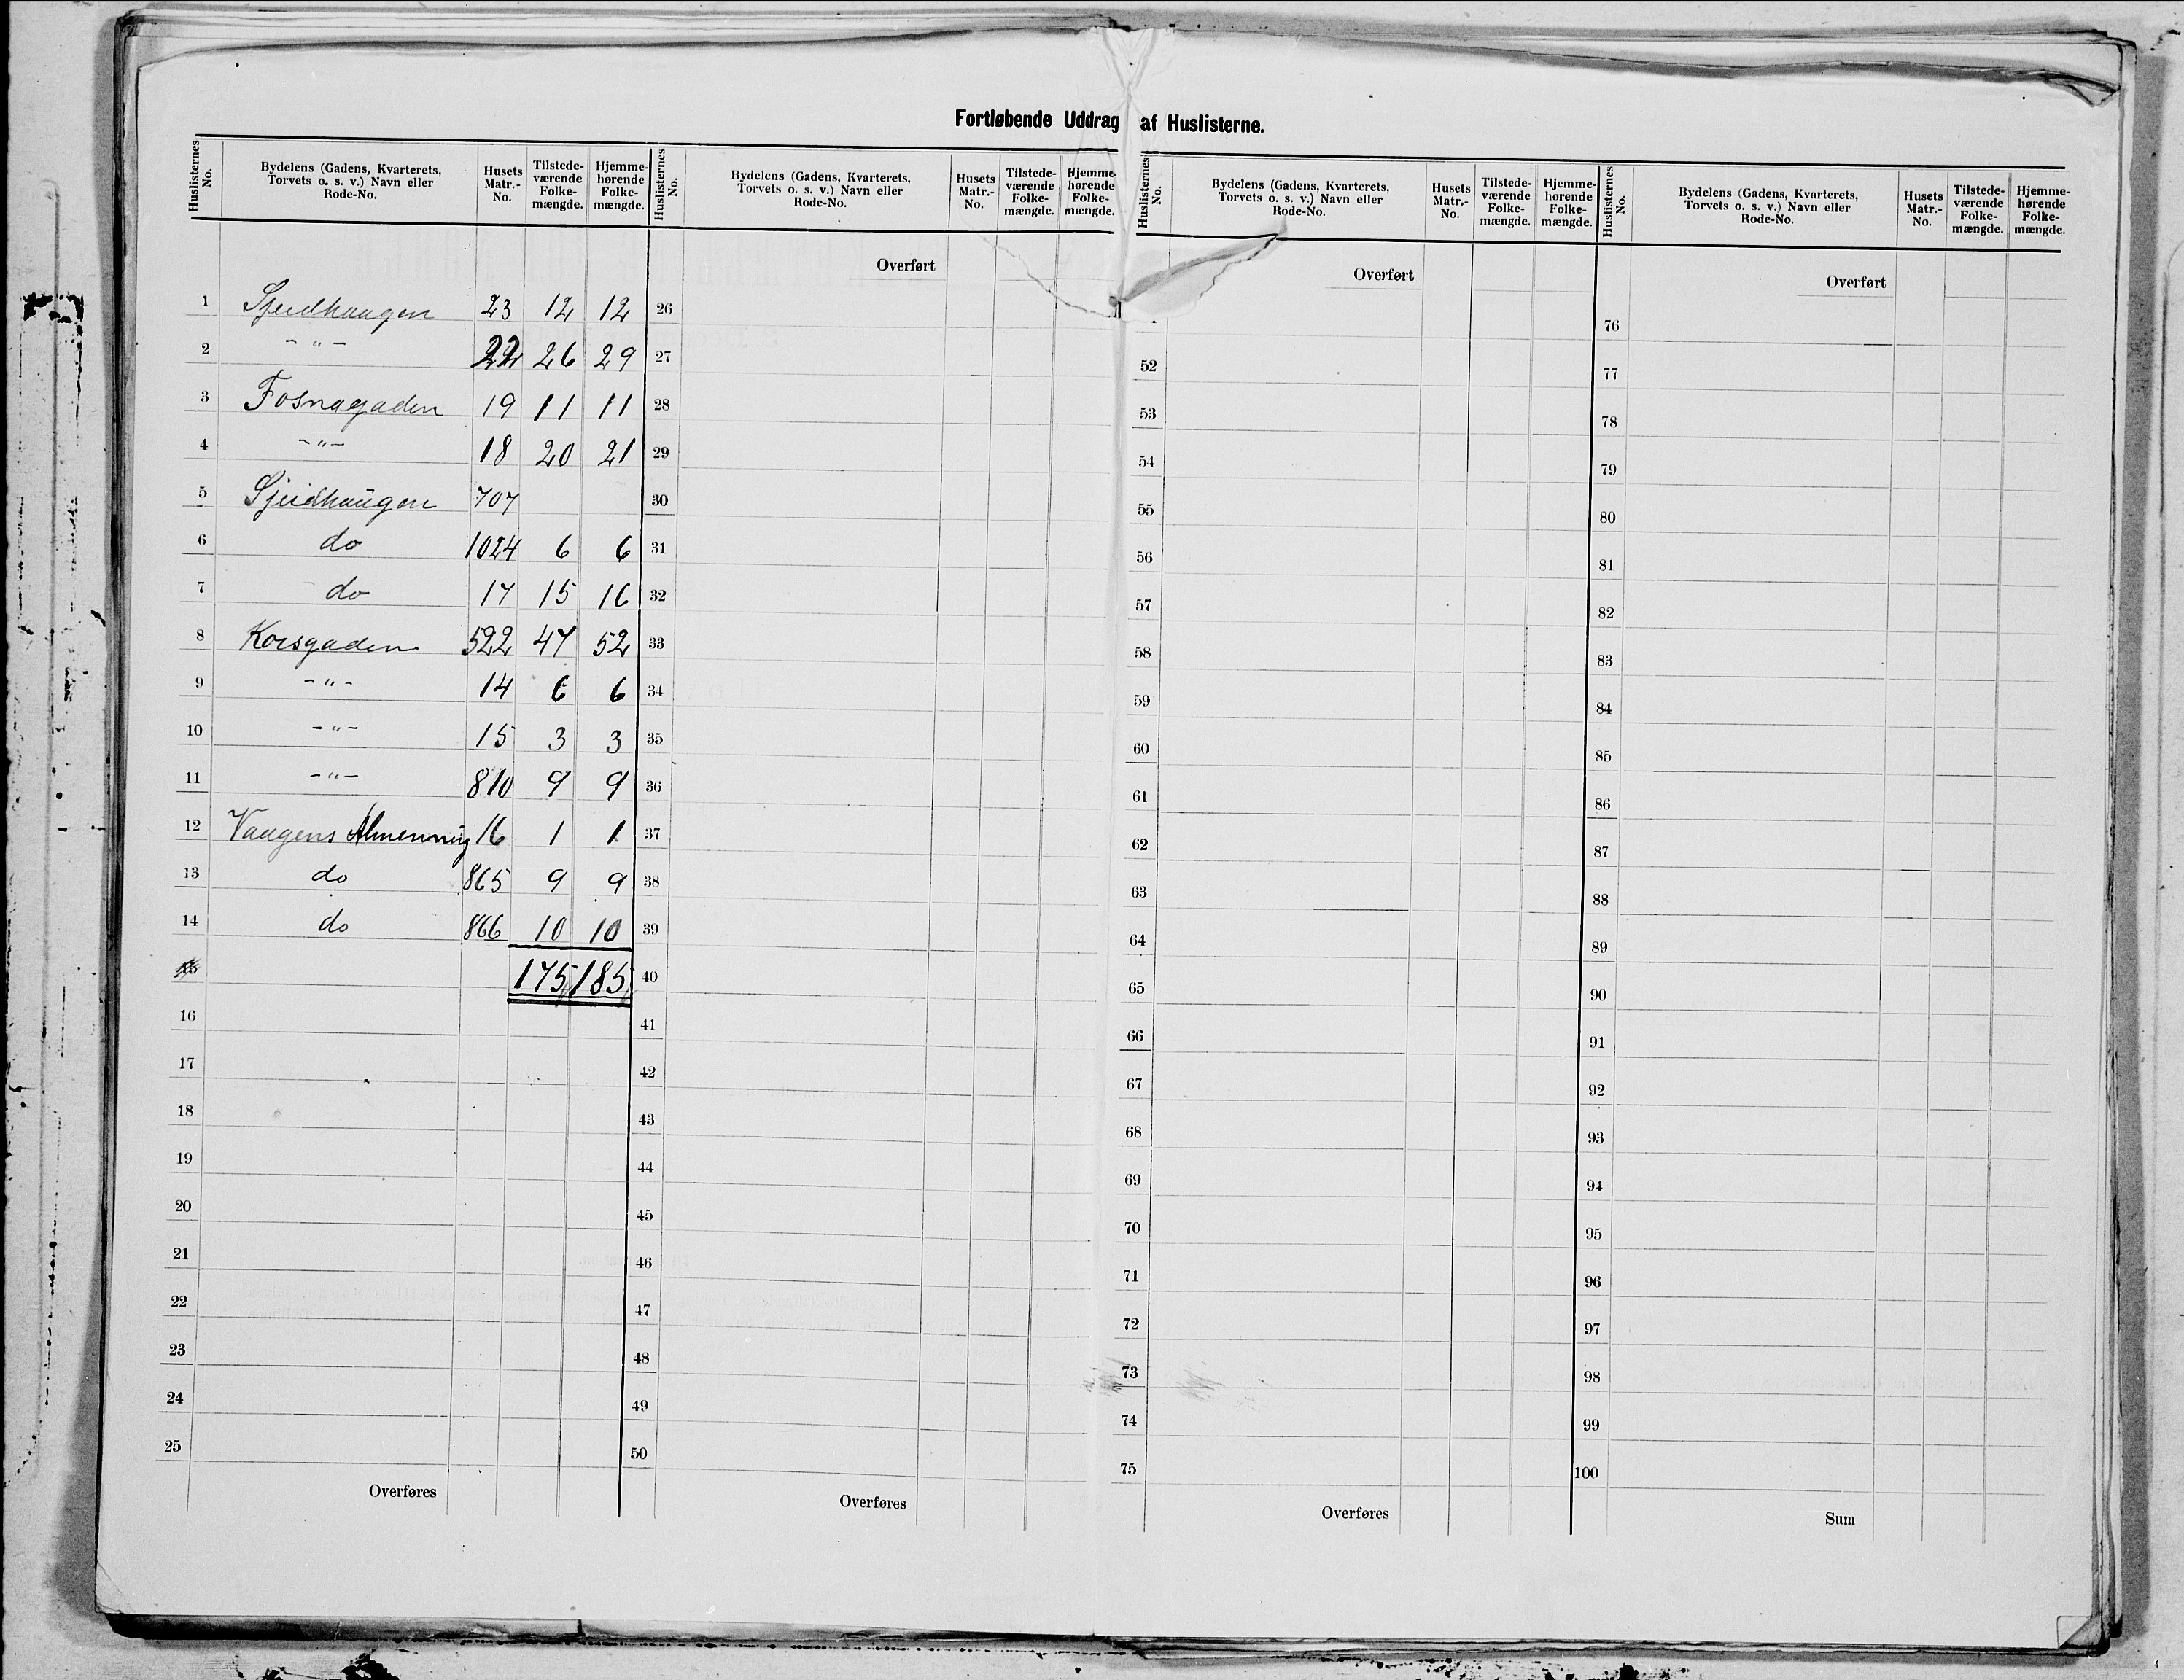 Fortløbende Uddrag af Huslisterne.
Huslisternes No. Bydelens (Gadens, Kvarterets, Torvets o. s. v.) Navn eller Rode-No. Husets Matr.-No. Tilstedeværende Folkemængde. Hjemmehørende Folkemængde.
1 23 12 12
2 -"- 22 26 29
3 Fosnagaden 19 11 11
4 -"- 18 20 21
5 707
6 do 1024 6 6
7 do 17 15 16
8 Korsgaden 522 47 52
9 -"- 14 6 6
10 -"- 15 3 3
11 -"- 810 9 9
12 Vaagens Almenning 16 1 1
13 do 865 9 9
14 do 866 10 10
15 175 185
16
17
18
19
20
21
22
23
24
25
Overføres
Huslisternes No. Bydelens (Gadens, Kvarterets, Torvets o. s. v.) Navn eller Rode-No. Husets Matr.-No. Tilstedeværende Folkemængde. Hjemmehørende Folkemængde.
Overført
26
27
28
29
30
31
32
33
34
35
36
37
38
39
40
41
42
43
44
45
46
47
48
49
50
Overføres
Huslisternes No. Bydelens (Gadens, Kvarterets, Torvets o. s. v.) Navn eller Rode-No. Husets Matr.-No. Tilstedeværende Folkemængde. Hjemmehørende Folkemængde.
Overført
52
53
54
55
56
57
58
59
60
61
62
63
64
65
66
67
68
69
70
71
72
73
74
75
Overføres
Huslisternes No. Bydelens (Gadens, Kvarterets, Torvets o. s. v.) Navn eller Rode-No. Husets Matr.-No. Tilstedeværende Folkemængde. Hjemmehørende Folkemængde.
Overført
76
77
78
79
80
81
82
83
84
85
86
87
88
89
90
91
92
93
94
95
96
97
98
99
100
Sum